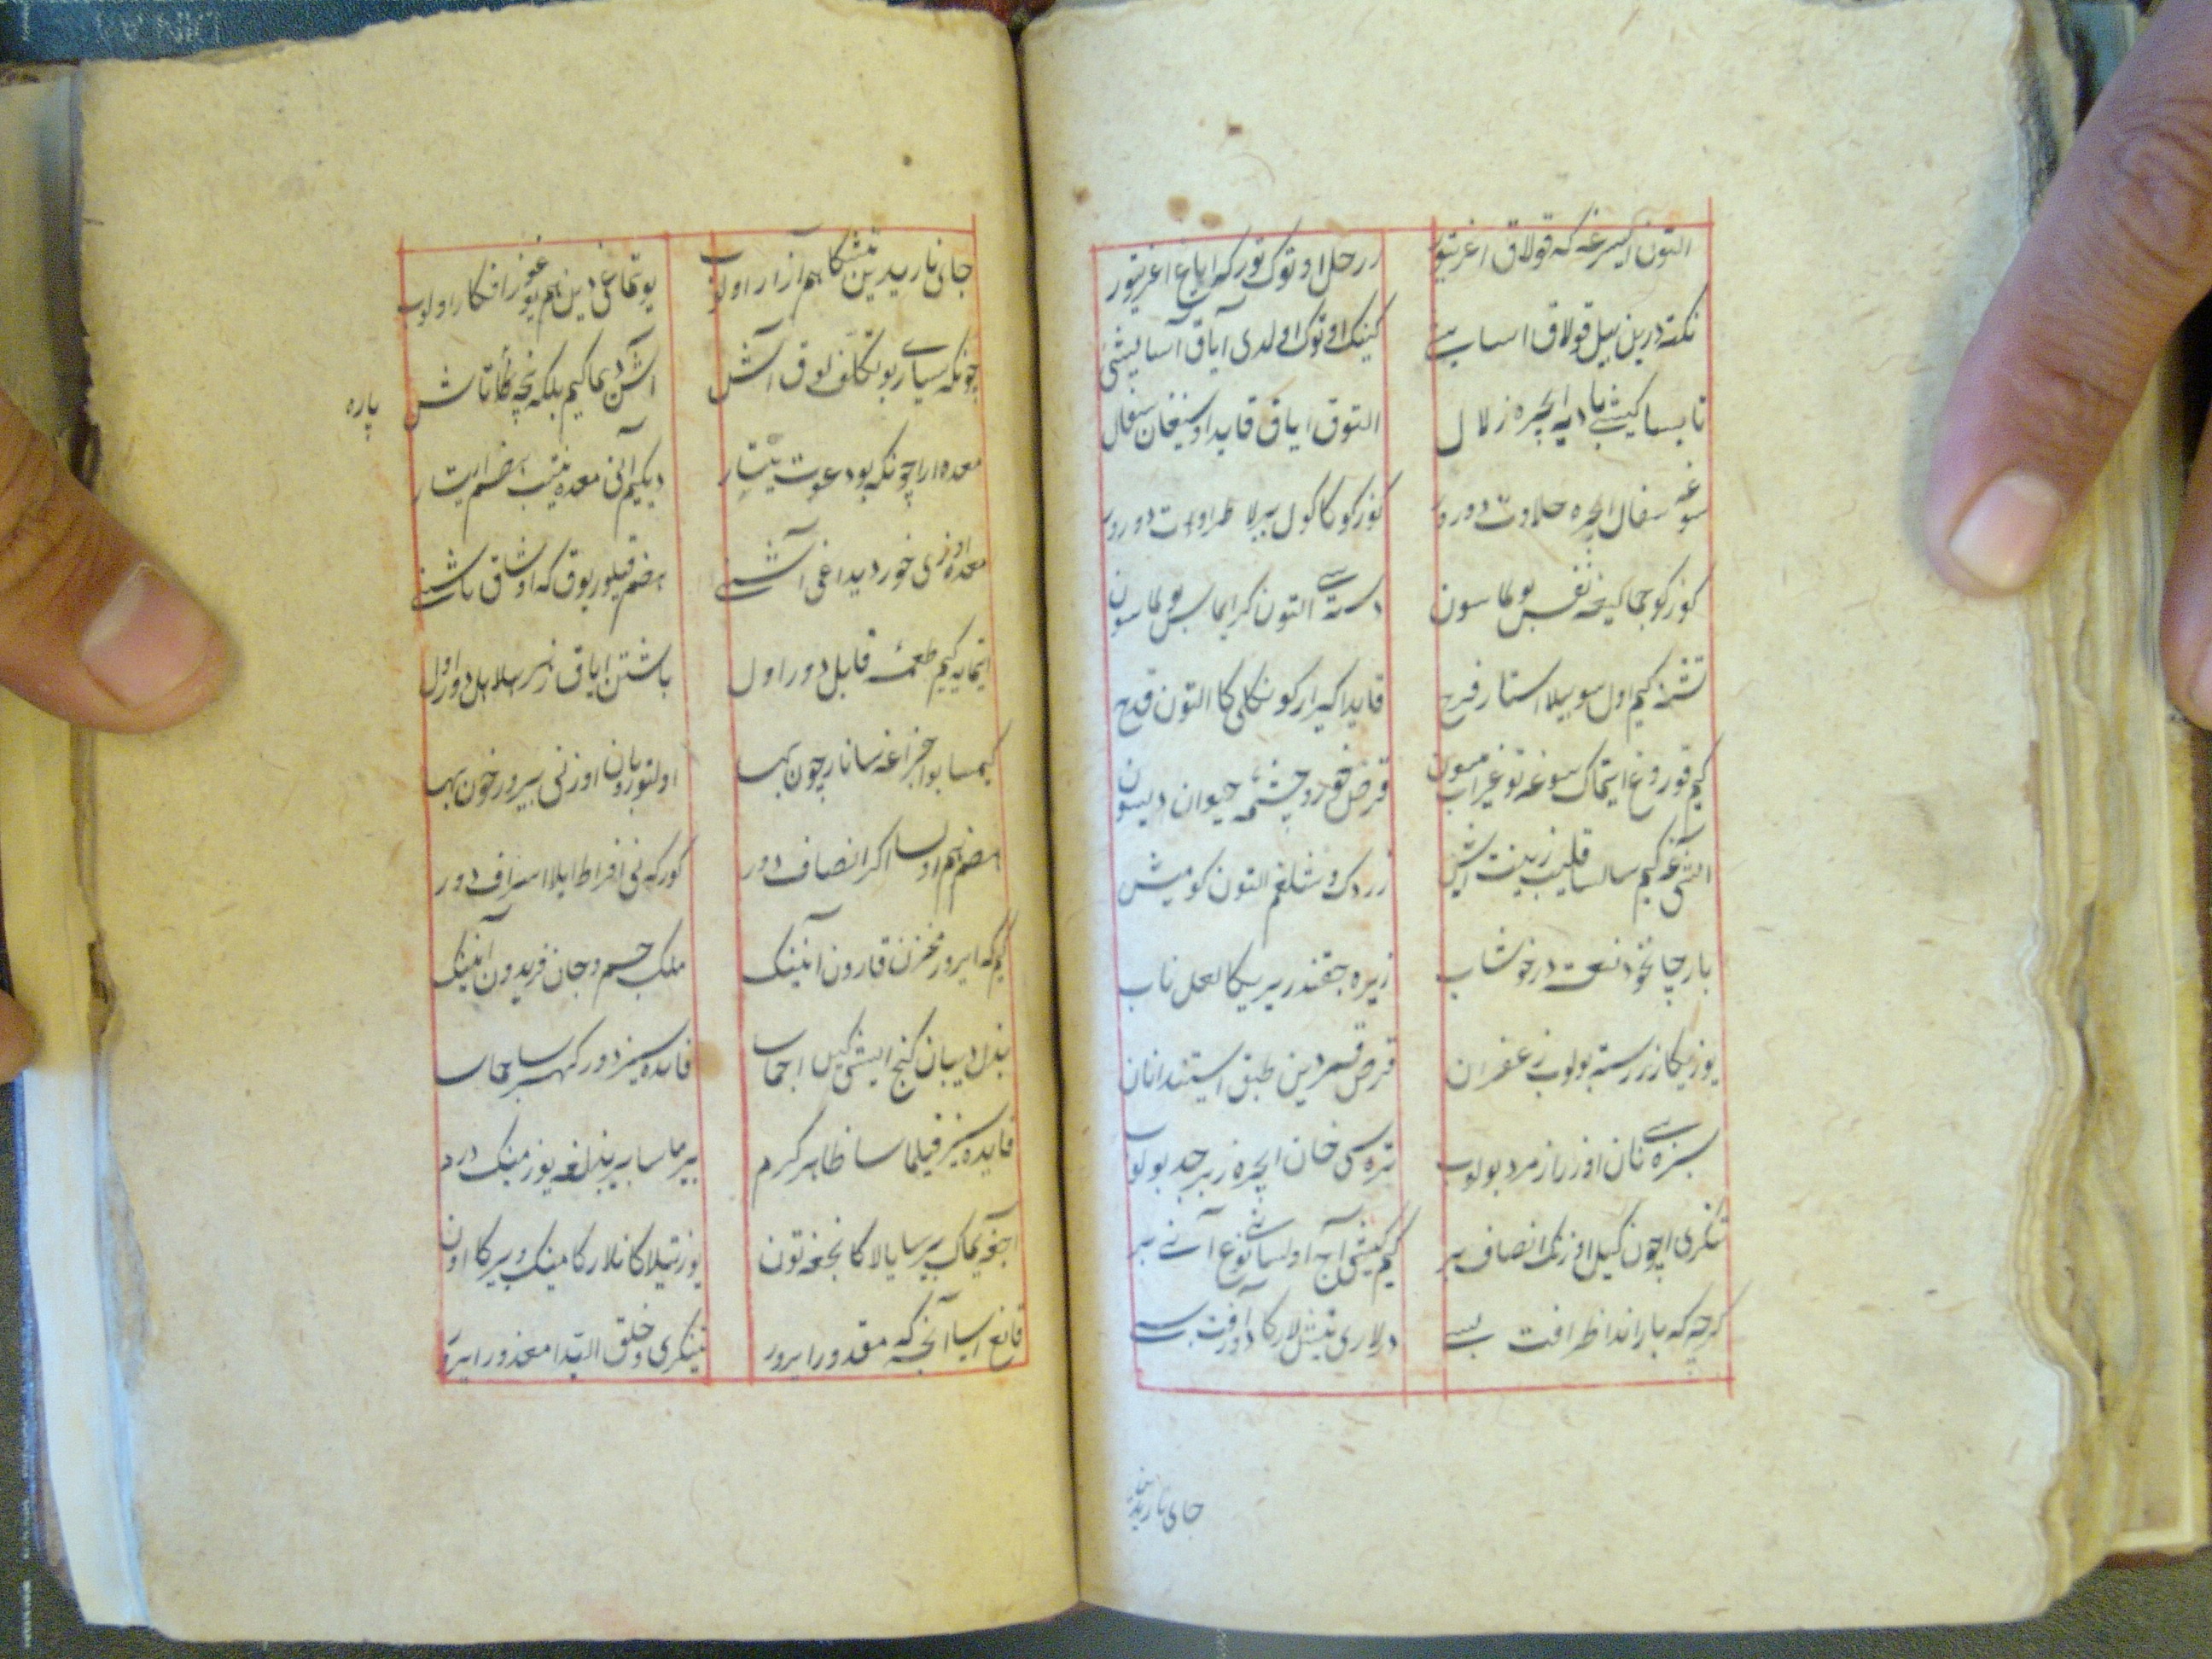 التون ایسرغه که قولاق اغریتور زر حل اوتوک تورکه ایاغ اغریتور
نکته درین بیل قولاق اساب سنی کینک اوتوک اولدی آیاق آسایشی
تابسا کیشی بادیه ایچره زلال التون ایاق قایدا و سینغان سفال
سوغه سفال ایچره حلاوت دورور کوزکو کا کول بیرلا طراوت دورور
کوزکو جماکیخه نفس بولماسون دسته سی التون کرایماس بولماسون
تشنه کیم اول سو بیلا استار فرح قایدا کیراک کونکلی کا التون قدح
کیم قوروغ ایتماک سوغه توغرامسون قرص خور و چشمه حیوان دیسون
آشی غه کیم سالسا قلیب زینت ایش زردک و شلغم التون کومیش
بارچا نخود نعت در خوشاب زیره چقندر بیریکا لعل ناب
یوزیکا زر رسته بولوب زعفران قرص قمردین طبق استیندا نان
سبزه سی نان اوزرا زمرد بولوب تره سی خان ایچره زبرجد بولوب
تنکری اچون کیل اوزنک انصاف بیر کیم کیشی آچ اولسا نی نوع آنی ییر
کرچه که بار اندا ظرافت بسی دلاری تیش لارکا دور آفت بسی
جای ناریدین
جای ناریدین تیشکا هم آزار اولوب یوتماغی دین هم بوغوز افکار اولوب
چونکه سیاری بو تکلف لوق آش آش دیماکیم بلکه نچه طأ تاش
پاره
معده ارا چونکه بو دعوت ییتار دیکیم آنی معده نیتیب هضم ایتار
معده اوزی خورد یداغی آشنی هضم قیلور یوق که اوشاق تاشنی
ایتمایه کیم طعمه قابل دور اول باشتن ایاق زهر هلاهل دور اول
کیمسا بو اجزاغه سانار چون بها اولتورویان اوزنی بیرور خون بها
هضم هم اولسا اکر انصاف دور کورکه نی افراط ایلا اسراف دور
کیم که ایرور مخزن قارون آنینک ملک جسم و جان فریدون آنینک
بذل دیبان کنج ایشیکین اچماسا فایده سیز دور کهر ساچماسا
فایده سیز قیلماسا ظاهر کرم بیرماسا بیر بذلغه یوز مینک درم
اچغه یماک بیرسا یالانکاچغه تون یوز تیلاکانلارکا مینک و بیرکا اون
قانع ایسا آنچه که مقدور ایرور تینکری و خلق الیندا معذور ایرور